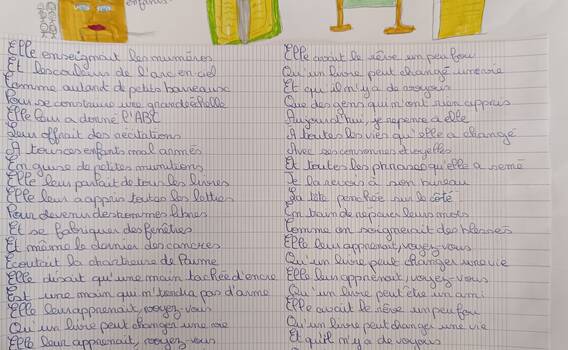 enfants.
Elle enseignait les numéros
Et les couleurs de l'arc en ciel
Comme autant de petits barreaux
Pour se construire une grande échelle
Elle leur a donné l'ABC
Leur offrait des récitations
A tous ces enfants mal armés
En guise de petites munitions
Elle leur parlait de tous les livres
Elle leur a appris toutes les lettres
Pour devenir des hommes libres
Et se fabriquer des fenêtres
Et même le dernier des cancres
Écoutait la chartreuse de Parme
Elle disait qu'une main tachée d'encre
Est une main qui n'tendra pas d'arme
Elle leur apprenait, voyez-vous
Qu'un livre peut changer une vie
Elle leur apprenait, voyez-vous
Elle avait le rêve un peu fou
Qu'un livre peut changé une vie
Et qu'il m'y a de voyous
Que des gens qui n'ont rien appris
Aujourd'hui, je repense à elle
A toutes les vies qu'elle a changé
Avec ses consonnes et voyelles
Et toutes les phrases qu'elle a semé
Je la revois à son bureau
La tête penchée sur le côté
En train de réparer leurs mots
Comme on soignerait des blessés
Elle leur apprenait, voyez-vous
Qu'un livre peut changer une vie
Elle leur apprenait, voyez-vous
Qu'un livre peut être un ami
Elle avait le rêve un peu fou
Qu'un livre peut changer une vie
Et qu'il m'y a de voyous